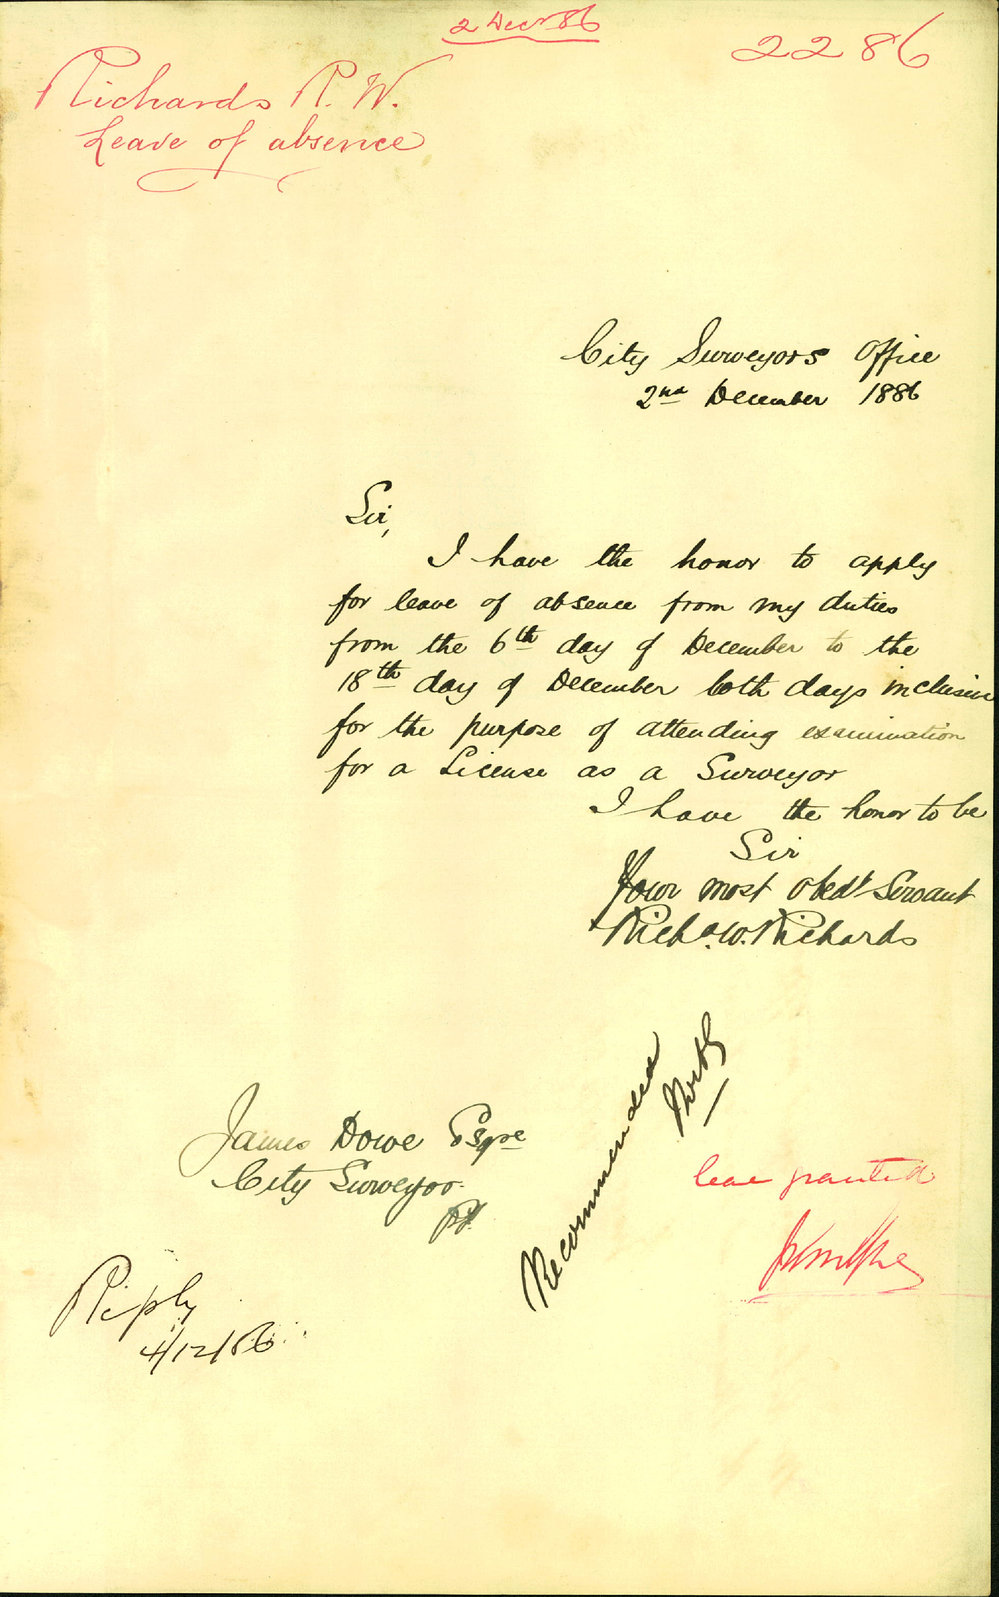 2 Decr 86
2286
Richards R. W.
Leave of absence
City Surveyors Office
2nd December 1886
Sir,
I have the honor to apply
for leave of absence from my duties
from the 6th day of December to the
18th day of December both days inclusive
for the purpose of attending examination
for a License as a Surveyor
I have the honor to be
Sir
Your most obedt Servant
Richd. W. Richards
Recommended
James Dowe Esqre
City Surveyor
leave granted
Reply
4/12/86